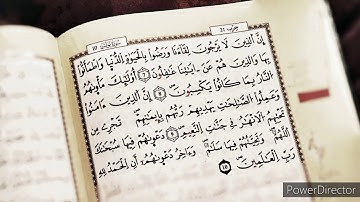 إِنَّ الَّذِينَ لَا يَرْجُونَ لِقَآءَنَا وَرَضُوا بِالْحَيَوٰةِ الدُّنْيَا وَاطْمَأَنُّوا
بِهَا وَالَّذِينَ هُمْ عَنْ ءَايَٰتِنَا غَٰفِلُونَ أُولَٰٓئِكَ مَأْوَىٰهُمُ
النَّارُ بِمَا كَانُوا يَكْسِبُونَ إِنَّ الَّذِينَ ءَامَنُوا
وَعَمِلُوا الصَّٰلِحَٰتِ يَهْدِيهِمْ رَبُّهُم بِإِيمَٰنِهِمْ تَجْرِي مِن
تَحْتِهِمُ الْأَنْهَٰرُ فِي جَنَّٰتِ النَّعِيمِ دَعْوَىٰهُمْ فِيهَا سُبْحَٰنَكَ
اللَّهُمَّ وَتَحِيَّتُهُمْ فِيهَا سَلَٰمٌ وَءَاخِرُ دَعْوَىٰهُمْ أَنِ الْحَمْدُ لِلَّهِ
رَبِّ الْعَٰلَمِينَ
PowerDirector